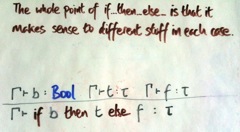 The whole point of if...then...else... is that it
makes sense to different stuff in each case.
Γ⊢b : Bool Γ⊢t : τ Γ⊢f : τ
Γ⊢ if b then t else f : τ